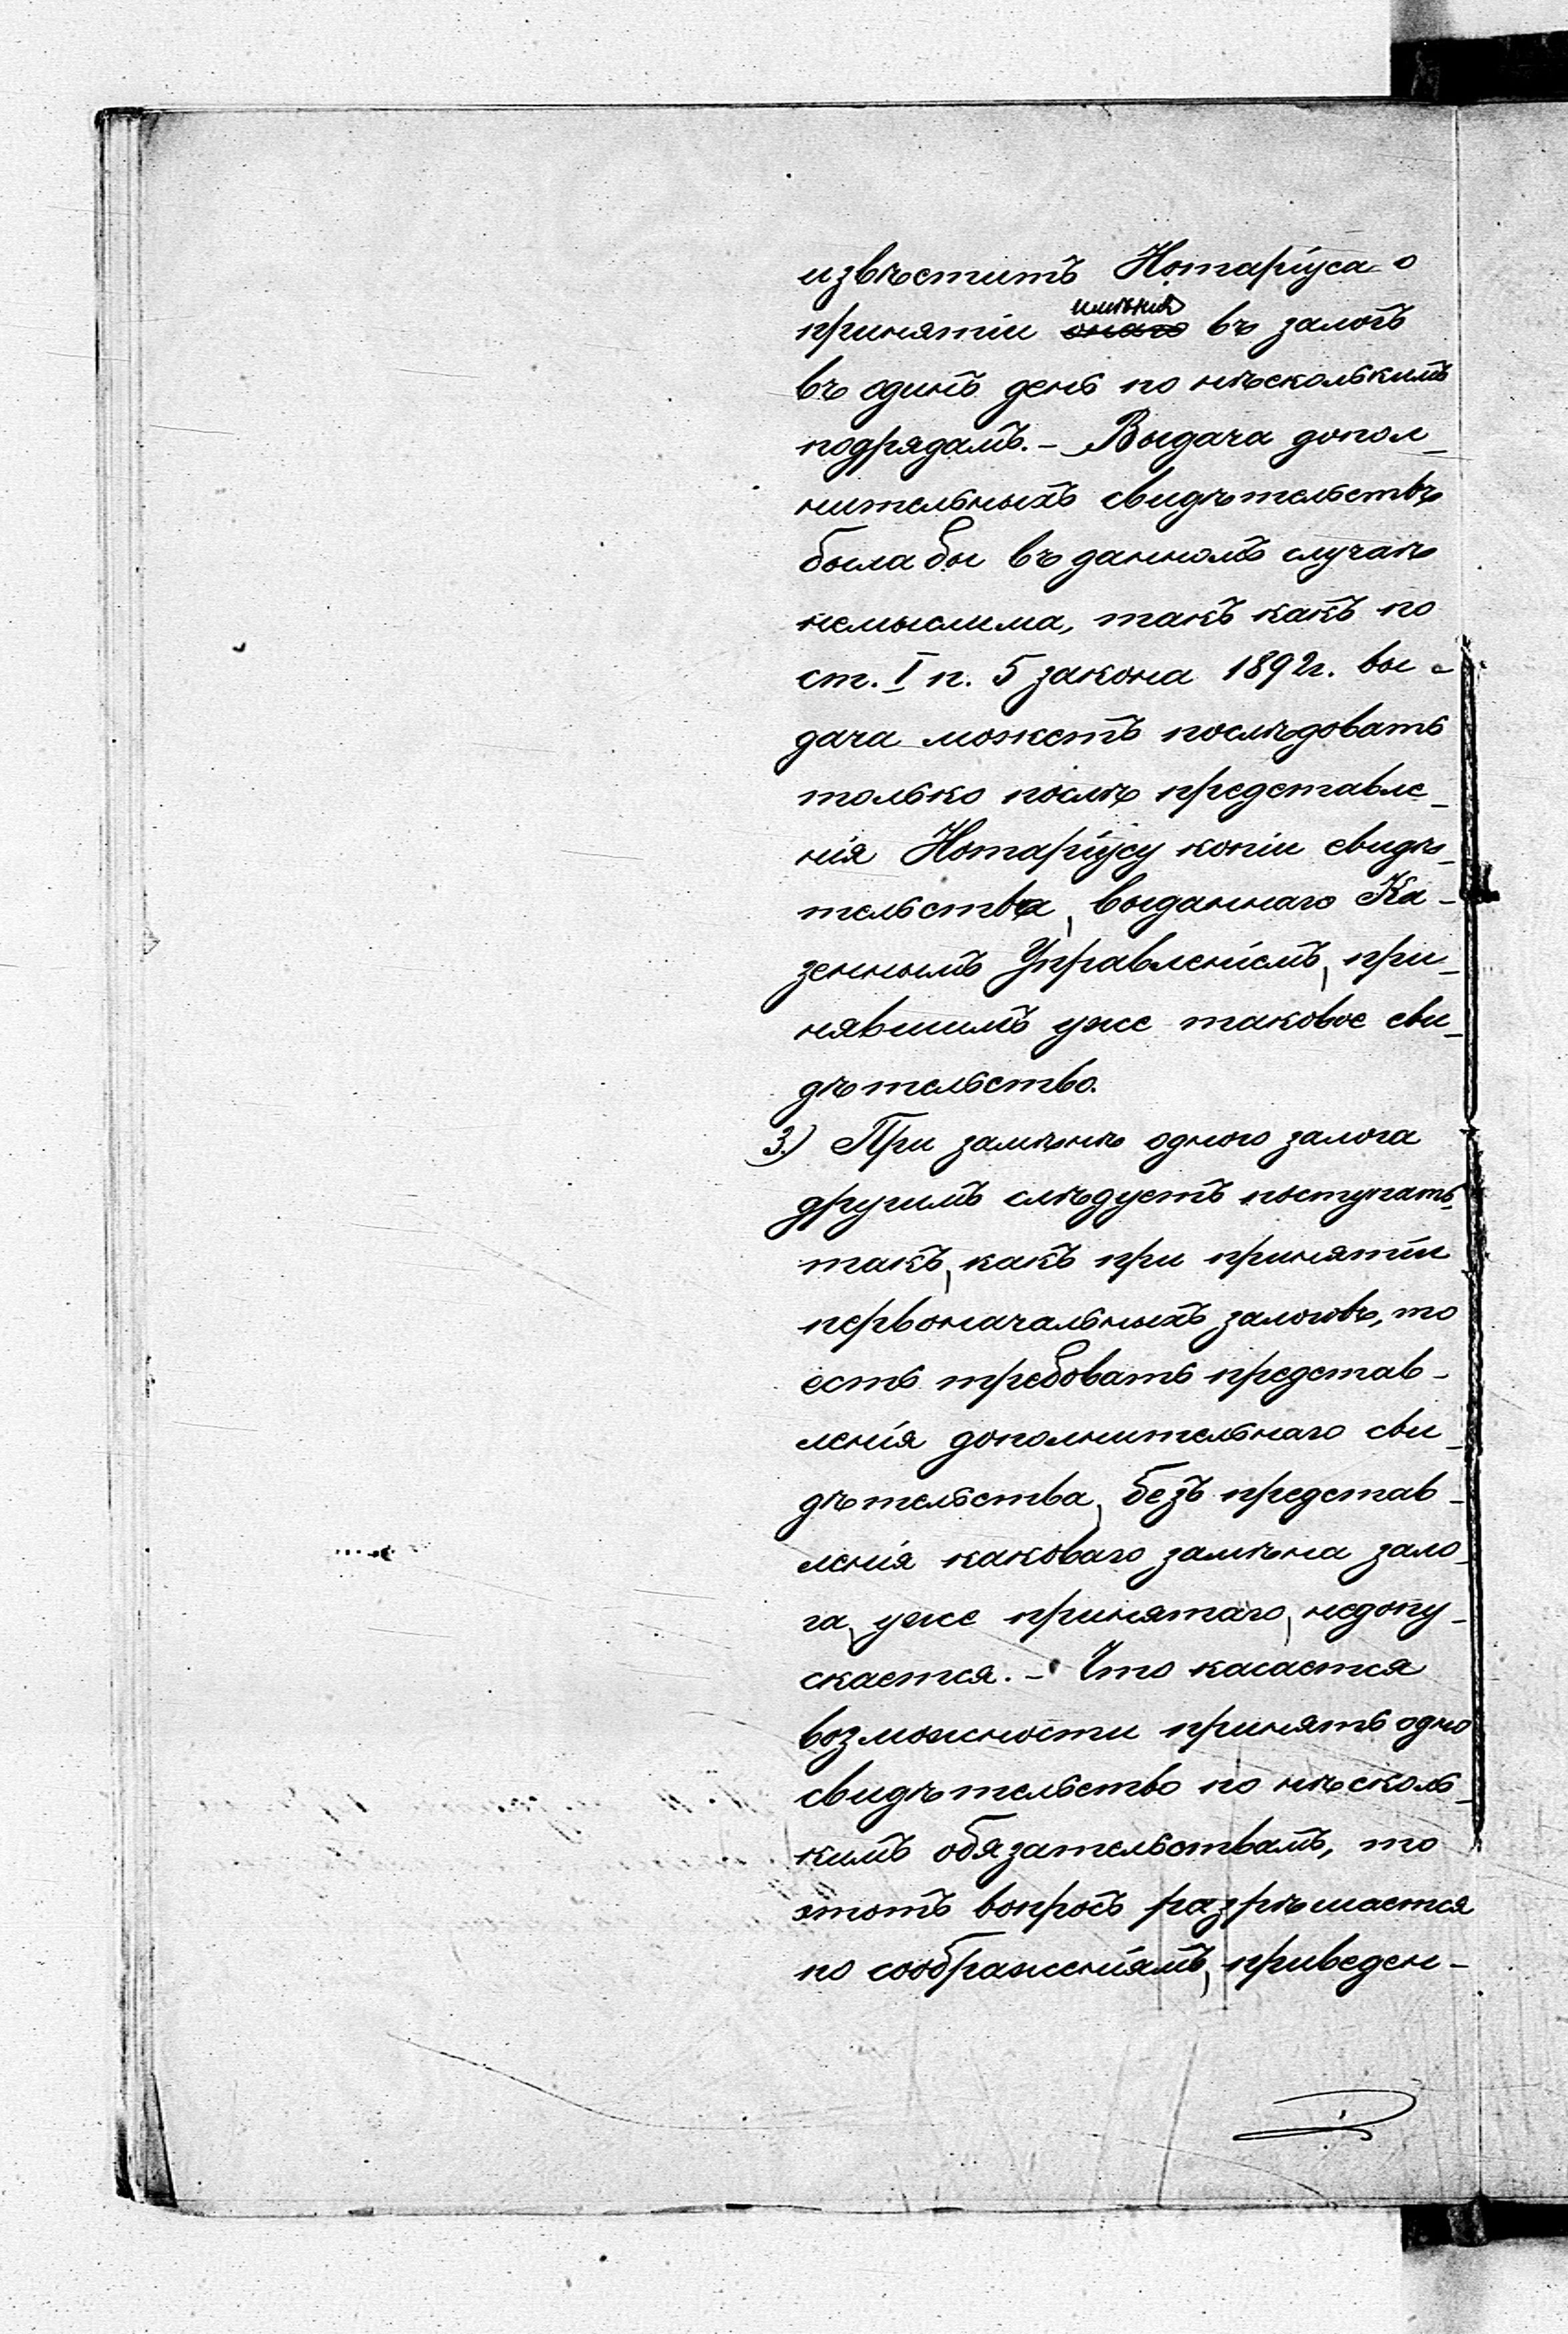 извѣститъ Нотаріуса о
имѣнія
принятіи онаго въ залогъ
въ одинъ день по нѣсколькимъ
подрядамъ. – Выдача допол-
нительныхъ свидѣтельствъ
была бы въ данномъ случаѣ
немыслима, такъ какъ по
ст. I п. 5 закона 1892г. вы-
дача можетъ послѣдовать
только послѣ представле-
нія Нотаріусу копіи свидѣ-
тельства, выданнаго Ка-
зеннымъ Управленіемъ, при-
нявшимъ уже таковое сви-
дѣтельство.
3.) При замѣнѣ одного залога
другимъ слѣдуетъ поступать
такъ, какъ при принятіи
первоначальныхъ залоговъ, то
есть требовать представ-
ленія дополнительнаго сви-
дѣтельства, безъ представ-
ленія каковаго замѣна зало-
га, уже принятаго, недопу-
скается. – Что касается
возможности принять одно
свидѣтельство по нѣсколь-
кимъ обязательствамъ, то
этотъ вопросъ разрѣшается
по соображеніямъ, приведен-